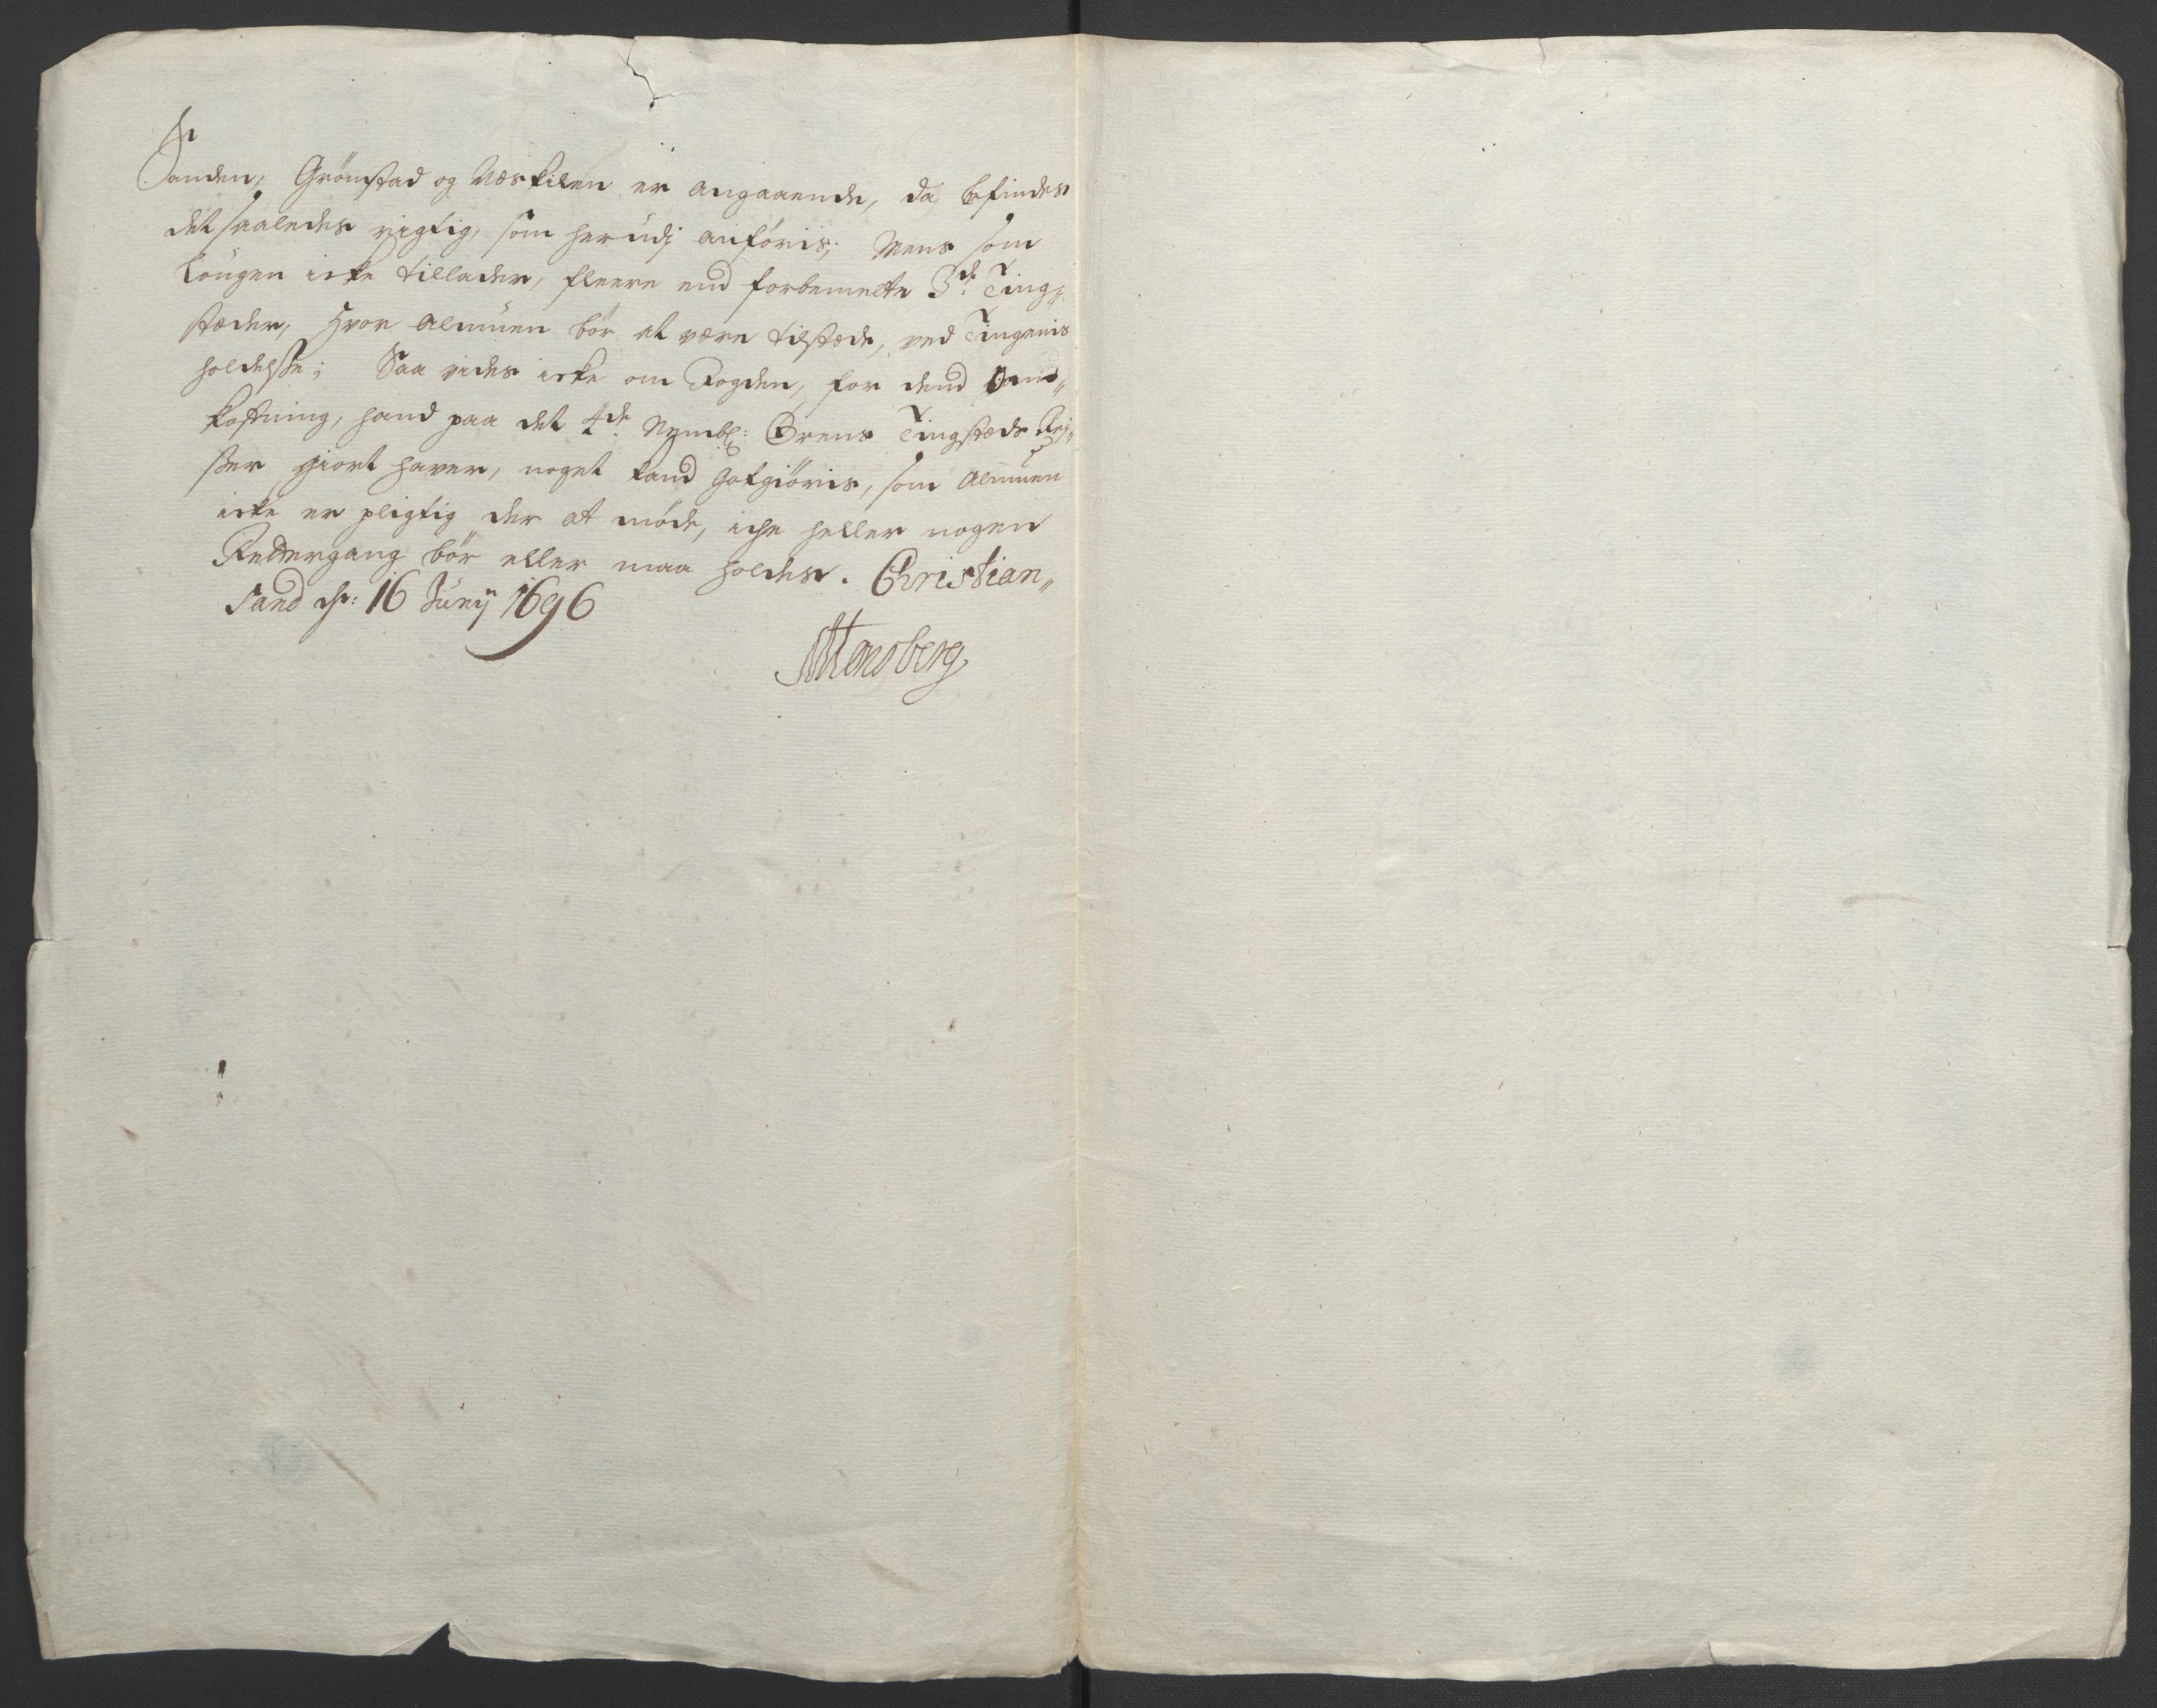 Sanden, Grömstad og Næskilen er angaaende, da befindes
det saaledes rigtig, som herudj anföris; Mens som
Lougen icke tillader, fleere end forbemelte 3de Ting„
stæder, Hvor Almuen bör at være tilstæde, ved Tingenis
holdelsse; Saa vides icke om Fogden, for dend Bem„
kostning, hand paa det 4de Nembl: Brens Tingstæde Rej„
ser giort haver, noget kand Gotgiöris, som Almuen
icke er pligtig der at möde, iche heller nogen
Rettergang bör eller maa holdes. Christian„
sand dn: 16 Junij 1696